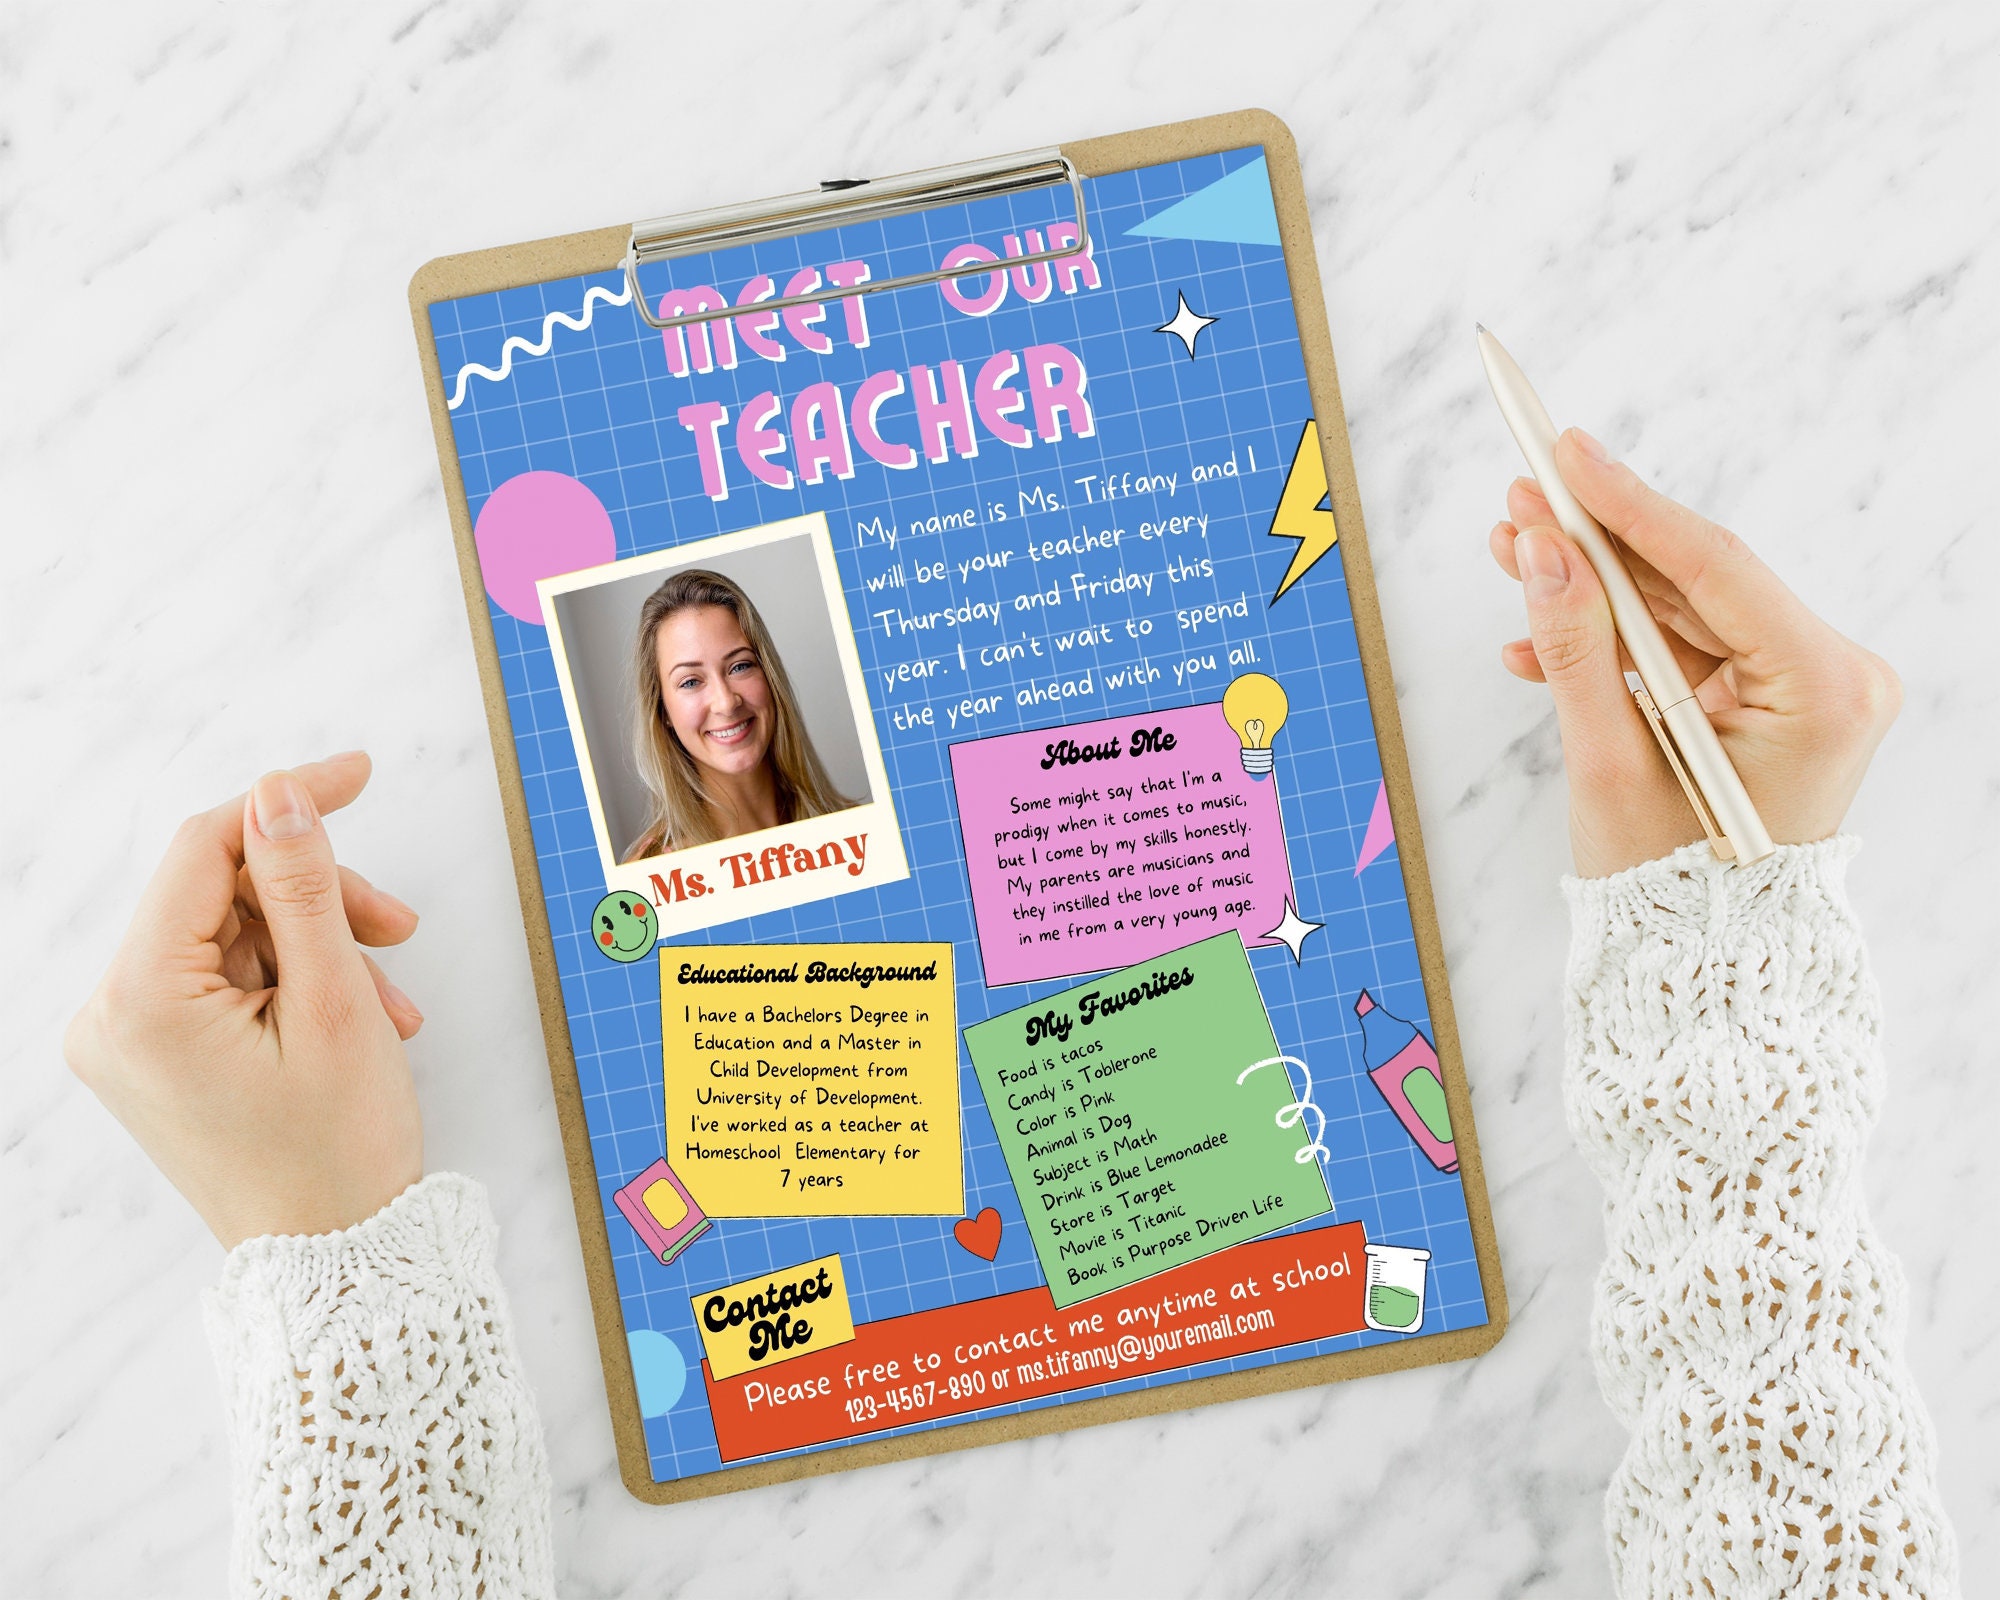 MEET OUR
TEACHER
My name is Ms. Tiffany and I
will be your teacher every
Thursday and Friday this
year. I can't wait to spend
the year ahead with you all.
Ms. Tiffany
About Me
Some might say that I'm a
prodigy when it comes to music,
but I come by my skills honestly.
My parents are musicians and
they instilled the love of music
in me from a very young age.
Educational Background
I have a Bachelors Degree in
Education and a Master in
Child Development from
University of Development.
I've worked as a teacher at
Homeschool Elementary for
7 years
My Favorites
Food is tacos
Candy is Toblerone
Color is Pink
Animal is Dog
Subject is Math
Drink is Blue Lemonadee
Store is Target
Movie is Titanic
Book is Purpose Driven Life
Contact
Me
Please free to contact me anytime at school
123-4567-890 or ms.tifanny@youremail.com